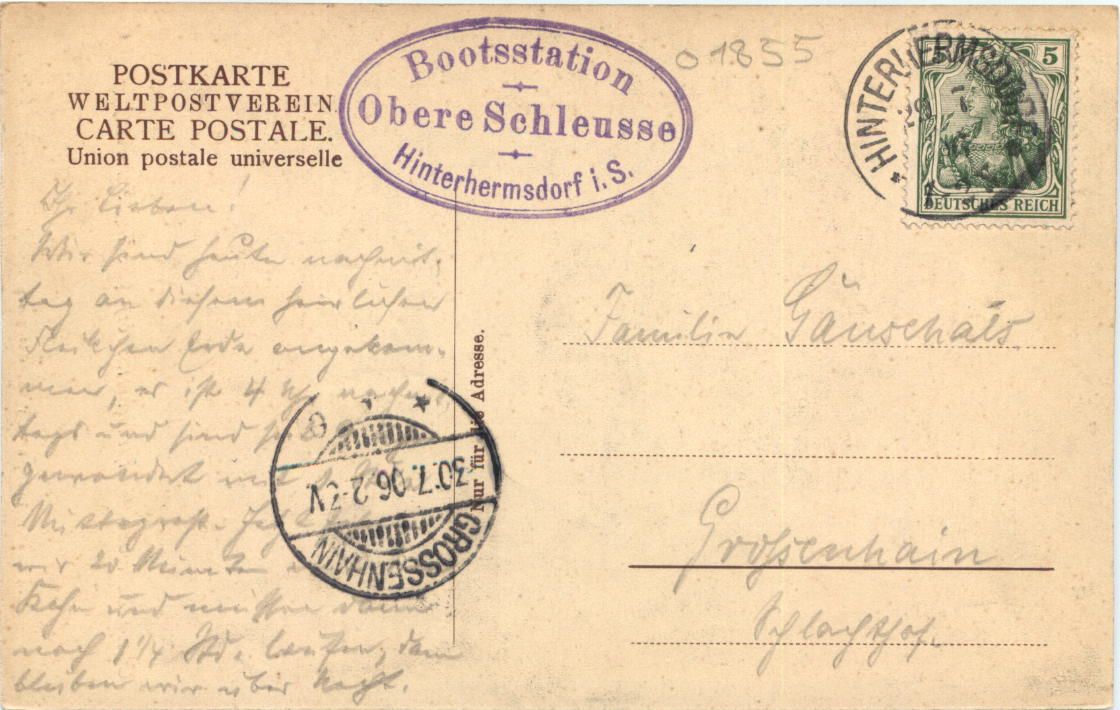 POSTKARTE
WELTPOSTVEREIN
CARTE POSTALE.
Union postale universelle
Bootsstation
Obere Schleusse
Hinterhermsdorf i. S.
01855
HINTERHERMSDORF
5
DEUTSCHES REICH
Ihr Lieben!
Wir sind heute nachmit-
tag an diesem herrlichen
Fleckchen Erde angekom-
men, es ist 4 Uhr nachmit-
tags und sind
gewandert mit
Mittagsrast. Jetzt fahren
wir 20 Minuten
Kahn und müssen dann
noch 1 1/4 Std. laufen, dann
bleiben wir über Nacht.
GROSSENHAIN
30.7.06.2-3V
Nur für die Adresse.
Familie
Großenhain
Schlachthof.